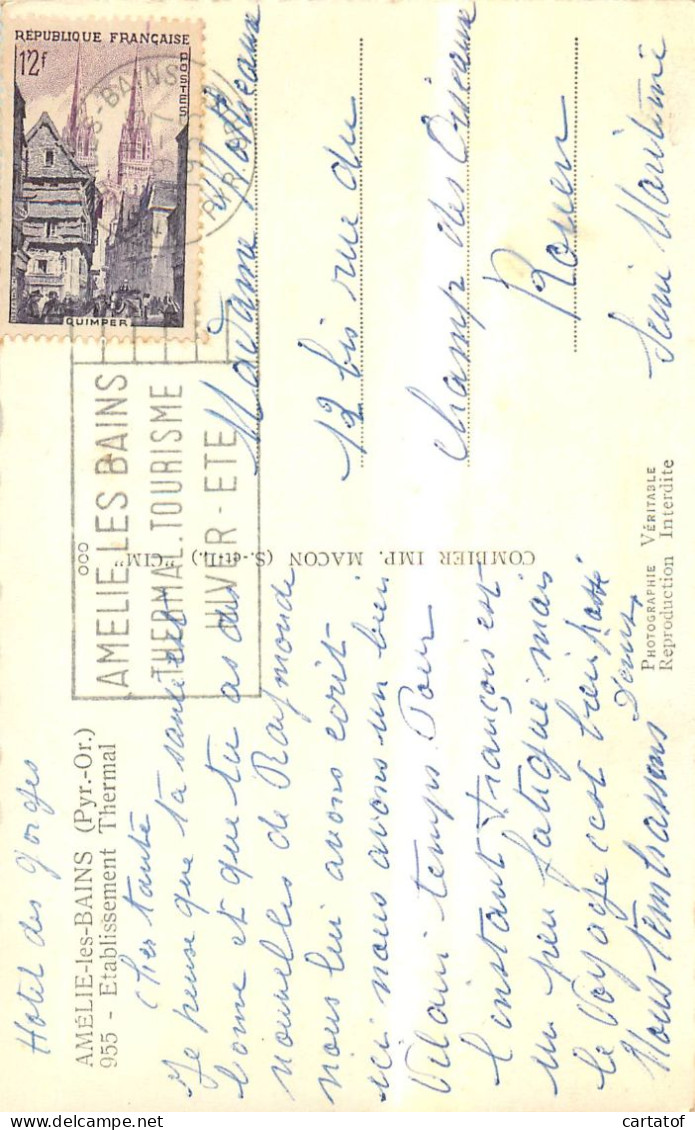 RÉPUBLIQUE FRANÇAISE
POSTES
12f
QUIMPER
AMELIE LES BAINS
THERMAL.TOURISME
HIVER-ETE
ooo
Hotel des Gorges
AMÉLIE-les-BAINS (Pyr.-Or.)
955 - Etablissement Thermal
Cher tante
Je pense que ta santé est
bonne et que tu as des
nouvelles de Raymonde
nous lui avons écrit
ici nous avons un bien
vilain temps. Pour
l'instant François est
un peu fatigué mais
le voyage c'est bien passé
Nous t'embrassons
Denise
COMBIER IMP. MACON (S.-et-L.) "CIM"
Madame
12 bis rue du
champ des Oiseaux
Rouen
Seine Maritime
PHOTOGRAPHIE VÉRITABLE
Reproduction Interdite
cartatof